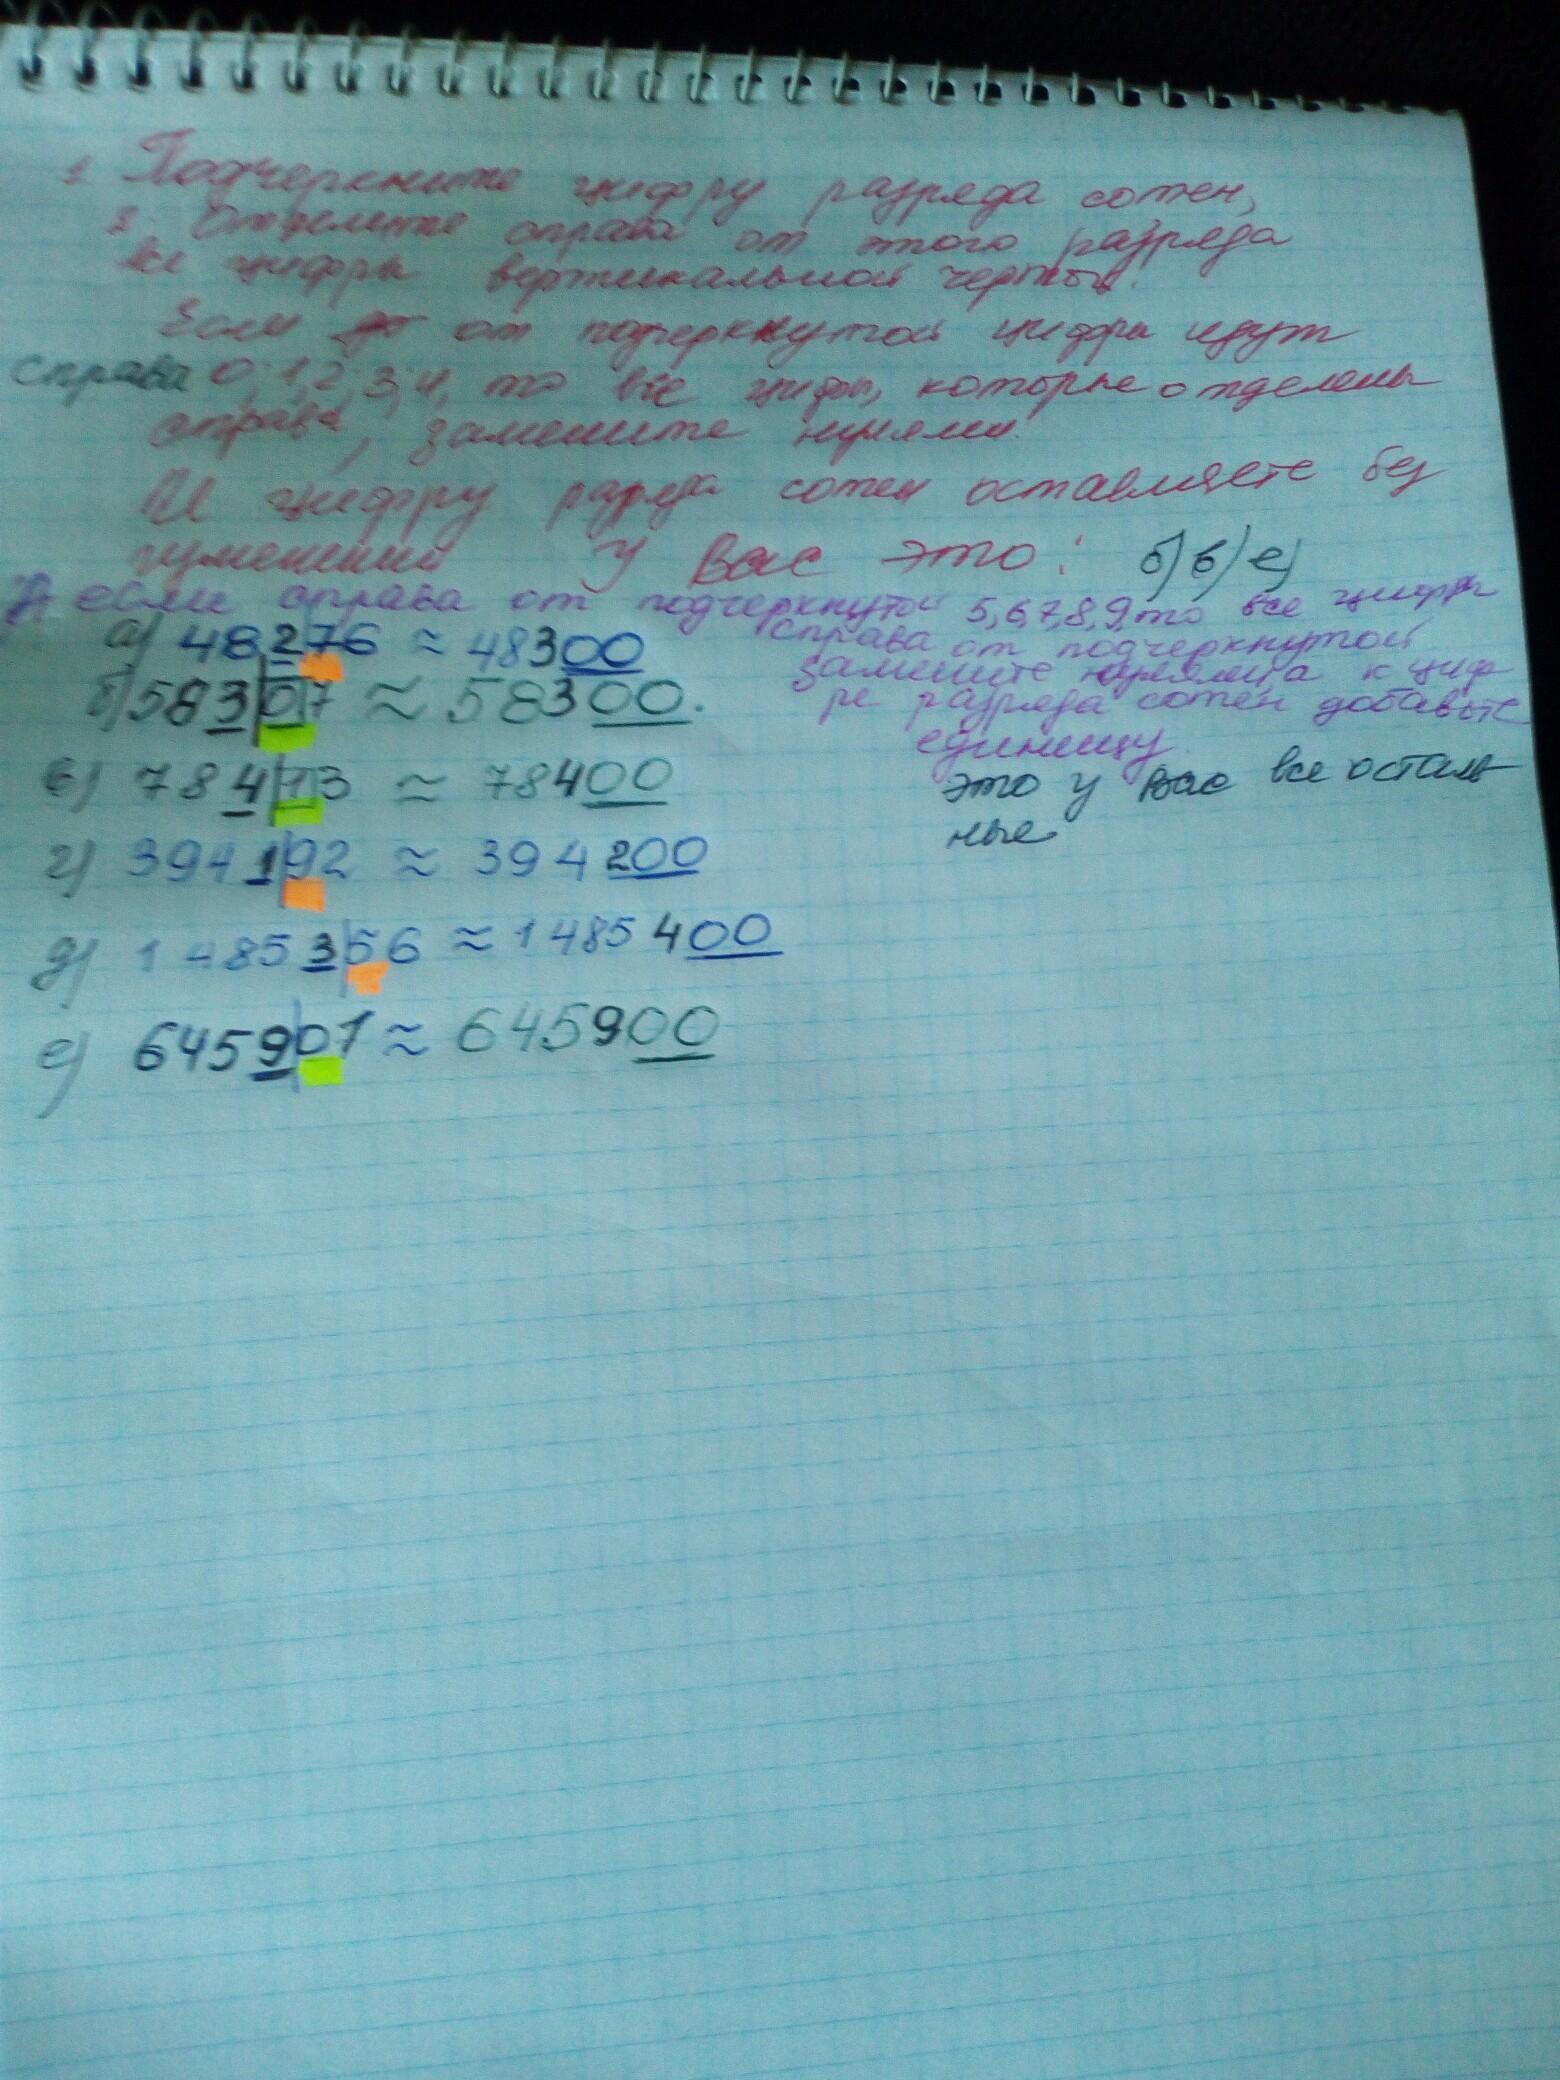 1. Подчеркните цифру разряда сотен,
2. Отделите справа от этого разряда
все цифры вертикальной чертой.
Если от подчеркнутой цифры идут
справа 0, 1, 2, 3, 4, то все цифры, которые отделены
справа, замените нулями.
И цифру разряда сотен оставляете без
изменений У Вас это: б) в) е)
А если справа от подчеркнутой 5, 6, 7, 8, 9, то все цифры
справа от подчеркнутой
замените нулями, а к циф-
ре разряда сотен добавьте
единицу.
Это у Вас все осталь-
ные
а) 48276 ≈ 48300
б) 583|07 ≈ 58300.
в) 784|13 ≈ 78400
г) 3941|92 ≈ 394200
д) 1 4853|56 ≈ 1 485 400
е) 6459|01 ≈ 645900